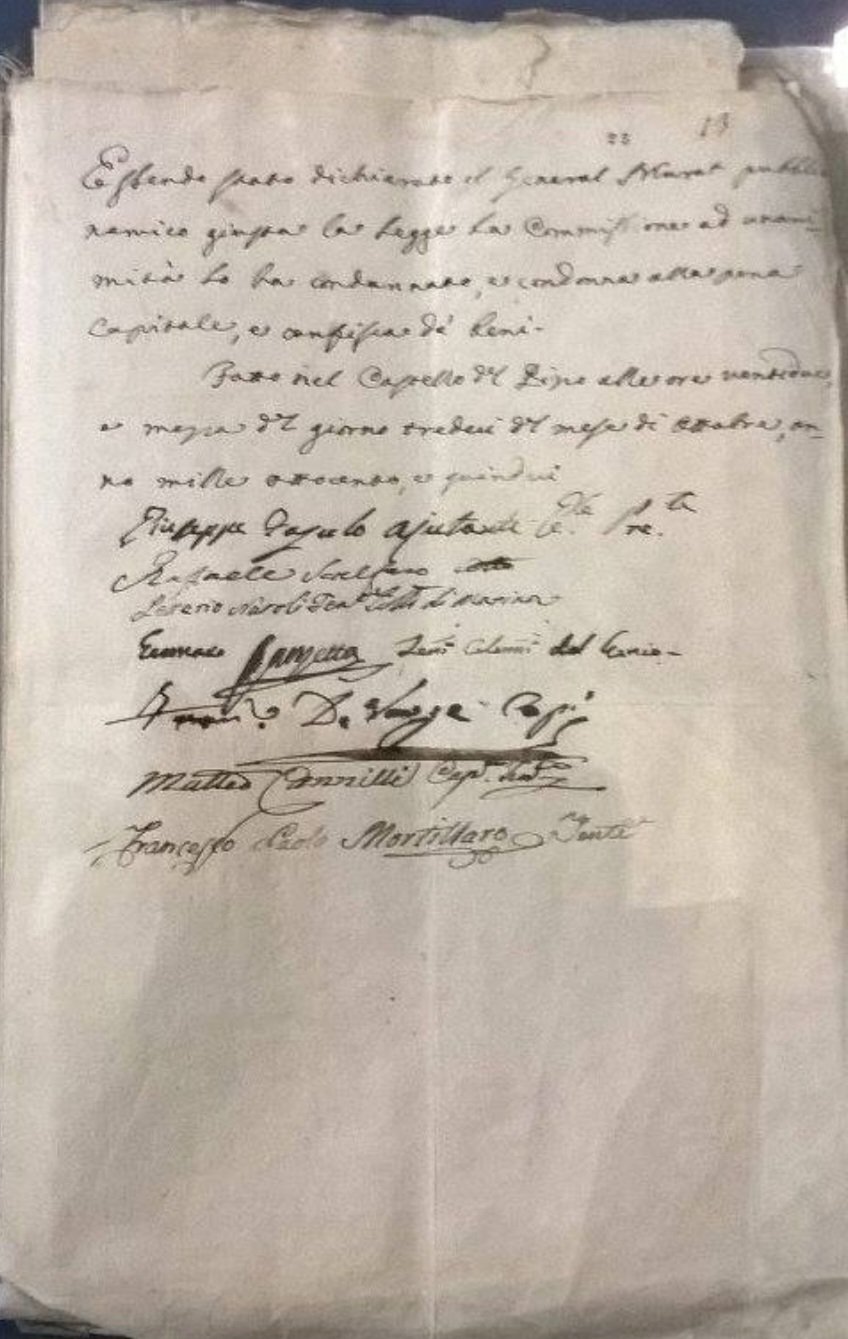 13
Essendo stato dichiarato il General Murat pubblico
nemico giusta la Legge La Commissione ad unani-
mità Lo ha condannato, e condanna alla pena
Capitale, e confisca de' beni.
Fatto nel Castello del Pizzo alle ore ventidue,
e mezza del giorno tredici del mese di Ottobre, an-
no mille ottocento, e quindici
Giuseppe Fasulo Ajutante
Raffaele Scalfaro
Laterio Natoli di Marina
Gennaro Lanzetta Ten. Colonn. del Genio
De Venge Cap.
Matteo Cannilli Cap.
Francesco Paolo Mortillaro Tente